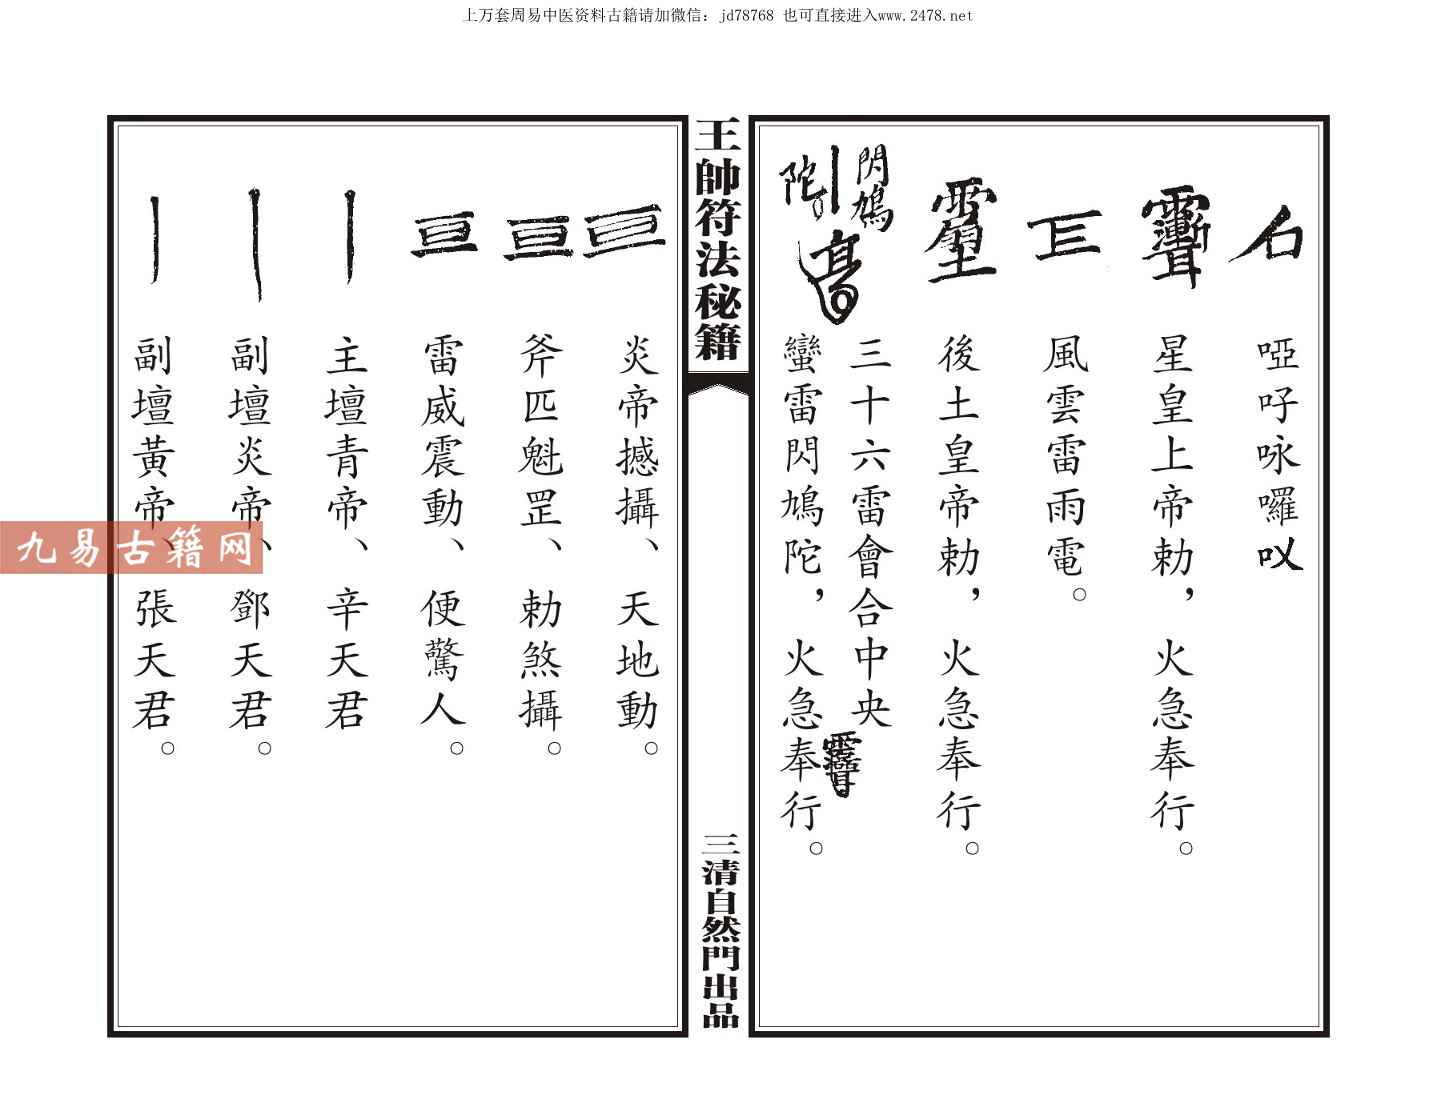 上万套周易中医资料古籍请加微信：jd78768 也可直接进入www.2478.net
啞吇咏囉㕥
星皇上帝勅，火急奉行。
風雲雷雨電。
後土皇帝勅，火急奉行。
閃鳩
陀。
三十六雷會合中央
蠻雷閃鳩陀，火急奉行。
王帥符法秘籍
三清自然門出品
炎帝撼攝、天地動。
斧匹魁罡、勅煞攝。
雷威震動、便驚人。
主壇青帝、辛天君
副壇炎帝、鄧天君。
副壇黃帝、張天君。
九易古籍网